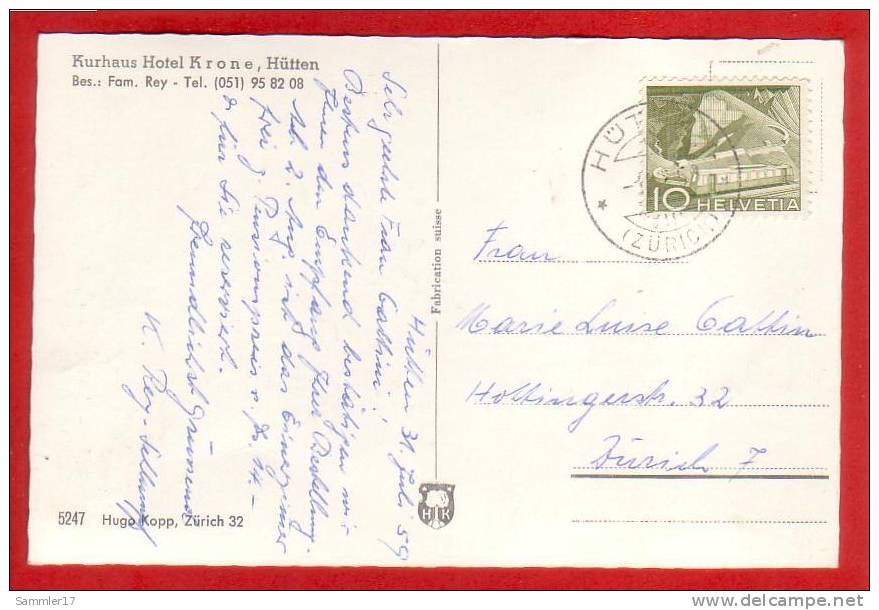 Kurhaus Hotel Krone, Hütten
Bes.: Fam. Rey - Tel. (051) 95 82 08
Hütten 31. Juli 59
Sehr geehrte Frau Cattin!
Bestens dankend bestätigen wir
Ihnen den Empfang Ihrer Bestellung.
Ab 2. Aug. ist das Einerzimmer
frei z. Pensionspreis v. Fr. 14.–
& für Sie reserviert.
Freundlichst Grüssend
K. Rey-
5247 Hugo Kopp, Zürich 32
Fabrication suisse
H K
HÜT
(ZÜRICH)
10 HELVETIA
Frau
Marie Luise Cattin
Hottingerstr. 32
Zürich 7
Sammler17
DELCAMPE.NET